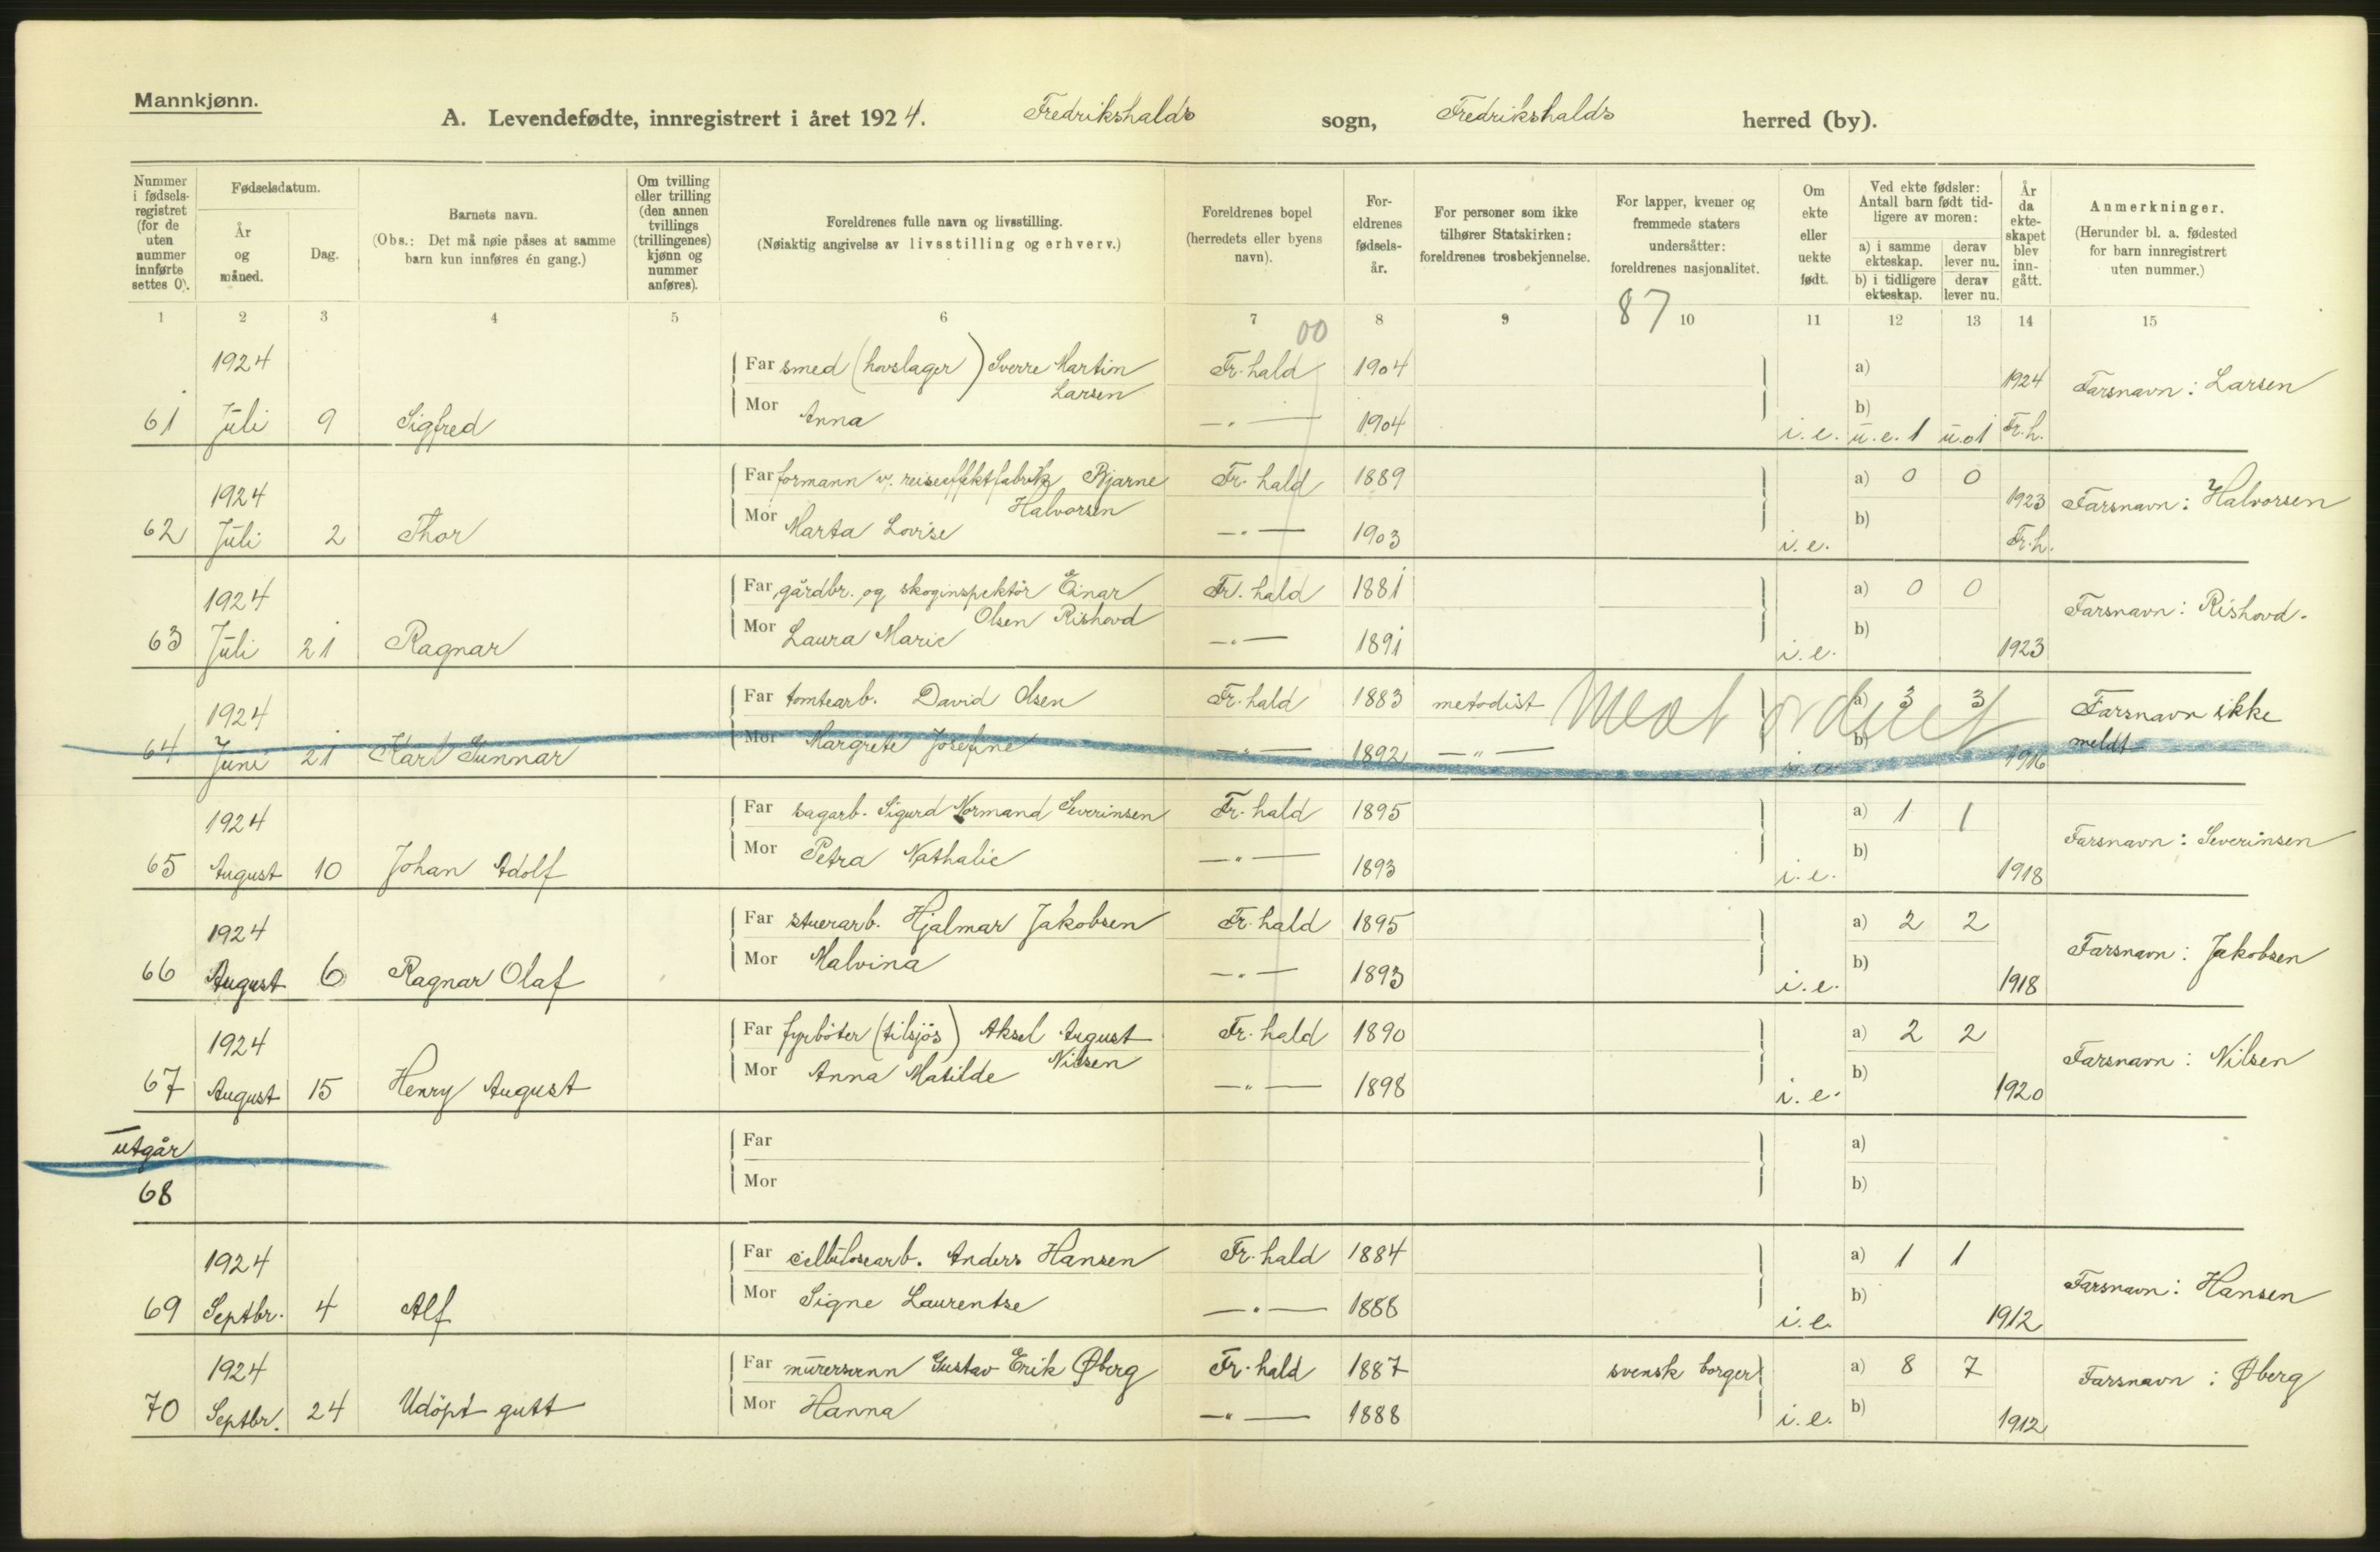 Mannkjønn.
A. Levendefødte, innregistrert i året 1924. Fredrikshalds sogn, Fredrikshalds herred (by).
Nummer i fødsels-registret (for de uten nummer innførte settes 0).
Fødselsdatum.
År og måned.
Dag.
Barnets navn.
(Obs.: Det må nøie påses at samme barn kun innføres én gang.)
Om tvilling eller trilling (den annen tvillings (trillingenes) kjønn og nummer anføres).
Foreldrenes fulle navn og livsstilling.
(Nøiaktig angivelse av livsstilling og erhverv.)
Foreldrenes bopel (herredets eller byens navn).
For-eldrenes fødsels-år.
For personer som ikke tilhører Statskirken: foreldrenes trosbekjennelse.
For lapper, kvener og fremmede staters undersåtter: foreldrenes nasjonalitet.
Om ekte eller uekte født.
Ved ekte fødsler: Antall barn født tid-ligere av moren:
a) i samme ekteskap. derav lever nu.
b) i tidligere ekteskap. derav lever nu.
År da ekte-skapet blev inn-gått.
Anmerkninger.
(Herunder bl. a. fødested for barn innregistrert uten nummer.)
1 2 3 4 5 6 7 8 9 10 11 12 13 14 15
00 87
1924 Far smed (hovslager) Sverre Martin Larsen Fr.hald 1904 a) 1924 Farsnavn: Larsen
61 Juli 9 Sigfred Mor Anna —"— 1904 i.e. b) u.e. 1 u.e 1 Fr.h.
1924 Far formann v. reiseeffektfabrik Bjarne Halvorsen Fr. hald 1889 a) 0 0 1923 Farsnavn: Halvorsen
62 Juli 2 Thor Mor Marta Lovise —"— 1903 i.e. b) Fr.h.
1924 Far gårdbr. og skoginspektör Einar Olsen Rishovd Fr. hald 1881 a) 0 0 Farsnavn: Rishovd.
63 Juli 21 Ragnar Mor Laura Marie —"— 1891 i.e. b) 1923
1924 Far tomtearb. David Olsen Fr. hald 1883 metodist a) 3 3 Farsnavn ikke meldt
64 Juni 21 Karl Gunnar Mor Margrete Josefine —"— 1892 —"— i.e. b) 1916
1924 Far sagarb. Sigurd Normand Severinsen Fr. hald 1895 a) 1 1 Farsnavn: Severinsen
65 August 10 Johan Adolf Mor Petra Nathalie —"— 1893 i.e. b) 1918
1924 Far stuerarb. Hjalmar Jakobsen Fr. hald 1895 a) 2 2 Farsnavn: Jakobsen
66 August 6 Ragnar Olaf Mor Malvina —"— 1893 i.e. b) 1918
1924 Far fyrböter (tilsjös) Aksel August Nilsen Fr. hald 1890 a) 2 2 Farsnavn: Nilsen
67 August 15 Henry August Mor Anna Matilde —"— 1898 i.e. b) 1920
utgår Far a)
68 Mor b)
1924 Far cellulosearb. Anders Hansen Fr. hald 1884 a) 1 1 Farsnavn: Hansen
69 Septbr. 4 Alf Mor Signe Laurentse —"— 1888 i.e. b) 1912
1924 Far murersvenn Gustav Erik Øberg Fr. hald 1887 svensk borger a) 8 7 Farsnavn: Øberg
70 Septbr. 24 Udöpt gutt Mor Hanna —"— 1888 i.e. b) 1912